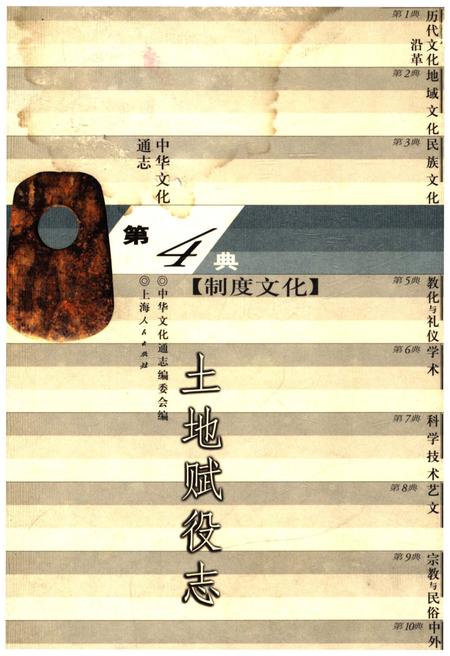 第1典
历代文化
沿革
第2典
地域文化
第3典
民族文化
中华文化
通志
第4典
【制度文化】
◎中华文化通志编委会编
◎上海人民出版社
土地赋役志
第5典
教化与礼仪
第6典
学术
第7典
科学技术
第8典
艺文
第9典
宗教与民俗
第10典
中外